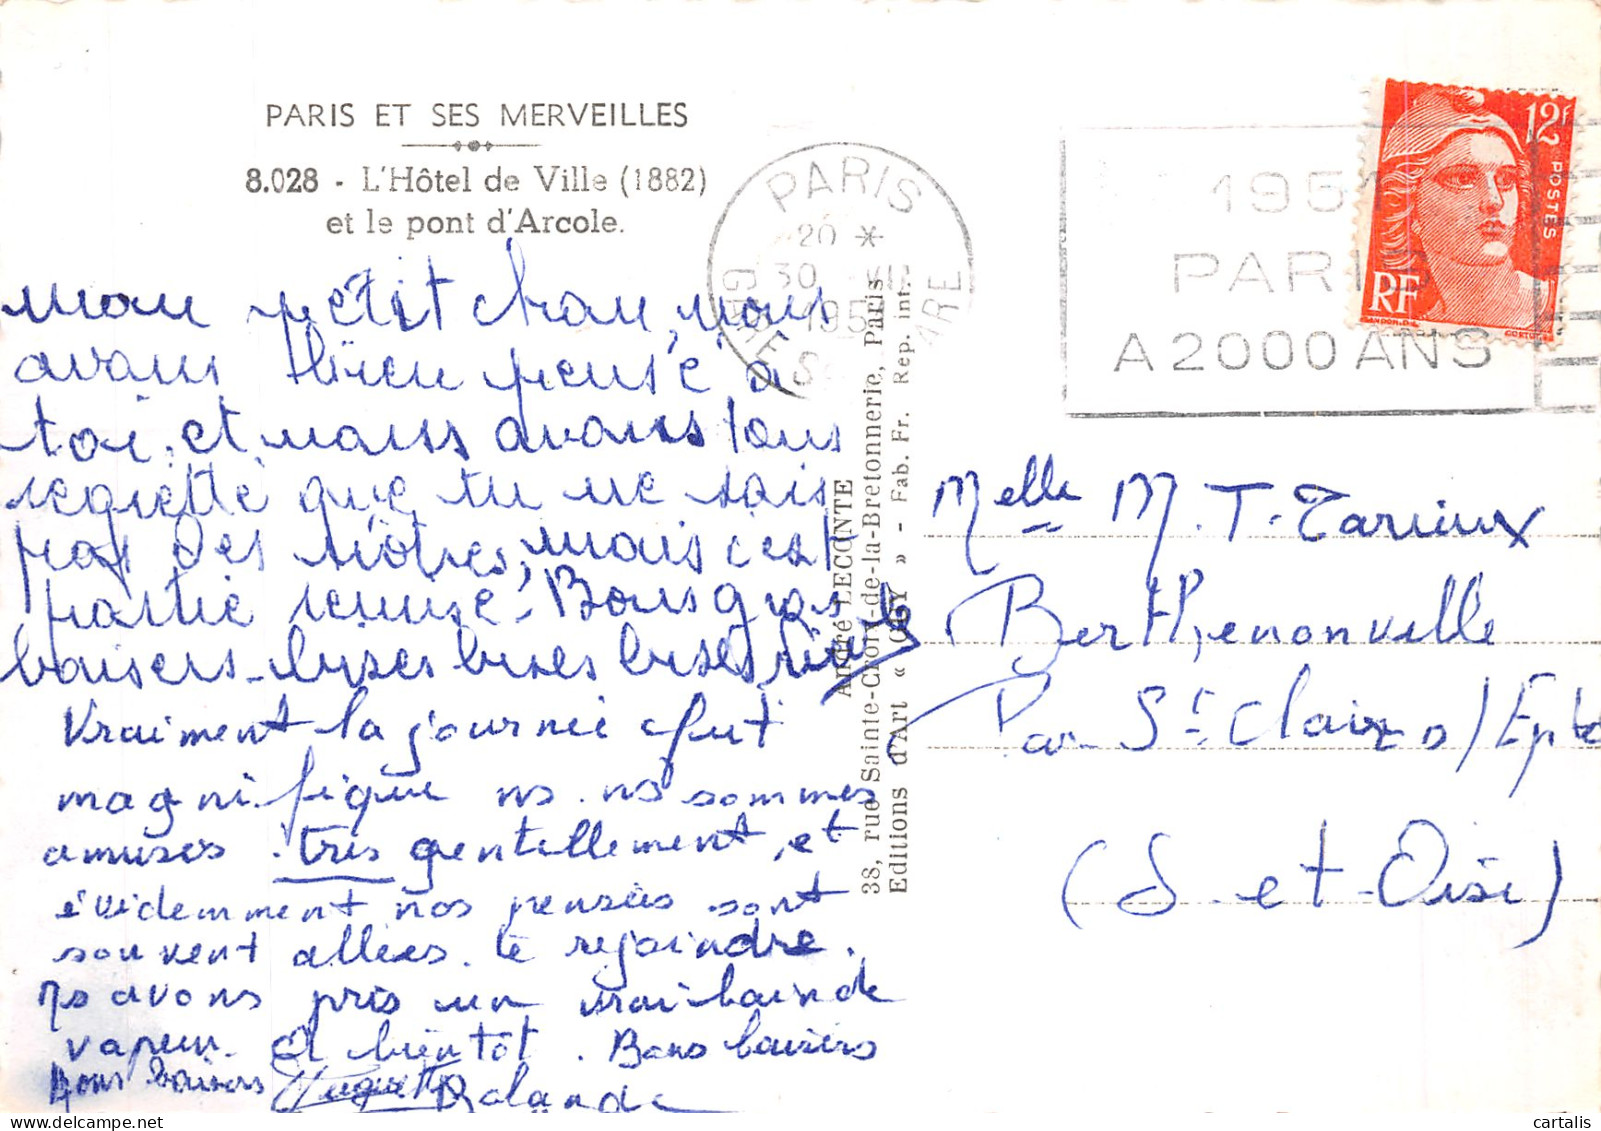 PARIS ET SES MERVEILLES
8.028 - L'Hôtel de Ville (1882)
et le pont d'Arcole.
mon petit chou, nous
avons bien pensé à
toi, et nous avons tous
regretté que tu ne sois
pas des nôtres, mais c'est
partie remise. Bons gros
baisers bises bises bises
Vraiment la journée fut
magnifique ns. ns sommes
amusés très gentillement, et
évidemment nos pensées sont
souvent allées te rejoindre.
Ns avons pris un vrai bain de
vapeur. A bientôt. Bons baisers
Bons baisers Huguette Rolande
ANDRÉ LECONTE
38, rue Sainte-Croix-de-la-Bretonnerie, Paris
Editions d'Art « GUY » - Fab. Fr. Rep. int.
PARIS
20 *
30 VII
1951
GARE ST LAZARE
1951
PARIS
A 2000 ANS
12F
POSTES
RF
GANDON. DEL.
Melle M. T. Tarrieux
Berthenonville
Par St Clair s/ Epte
(S. et Oise)
cartalis
www.delcampe.net